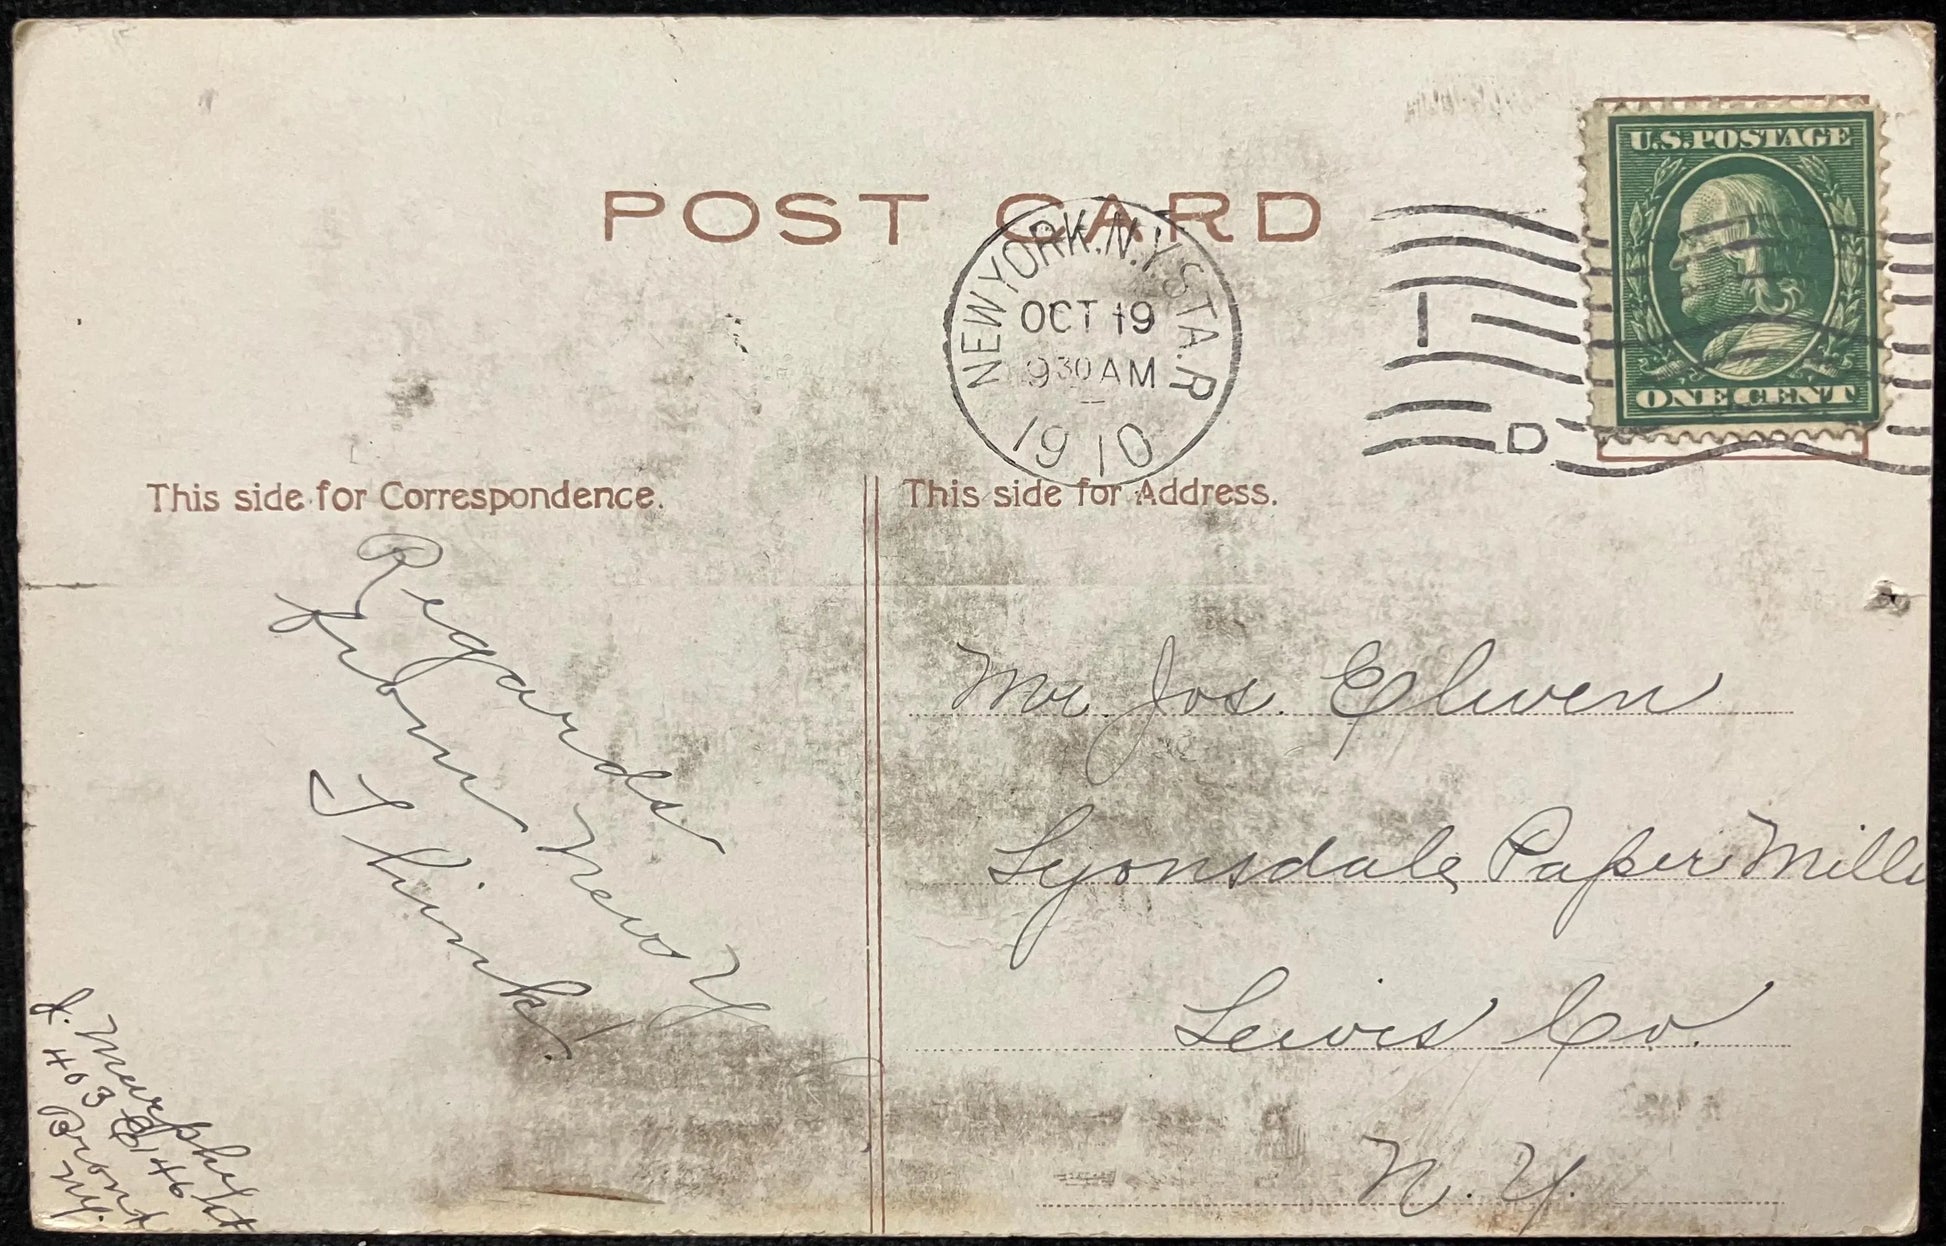 POST CARD
U.S. POSTAGE
ONE CENT
NEW YORK, N.Y. STA. R
OCT 19
9 30 AM
1910
I
D
This side for Correspondence.
Regards
from New Y
Think!
J. Murphy
403 E 146 St
Bronx
N.Y.
This side for Address.
Mr. Jos. Elwen
Lyonsdale Paper Mills
Lewis Co.
N. Y.